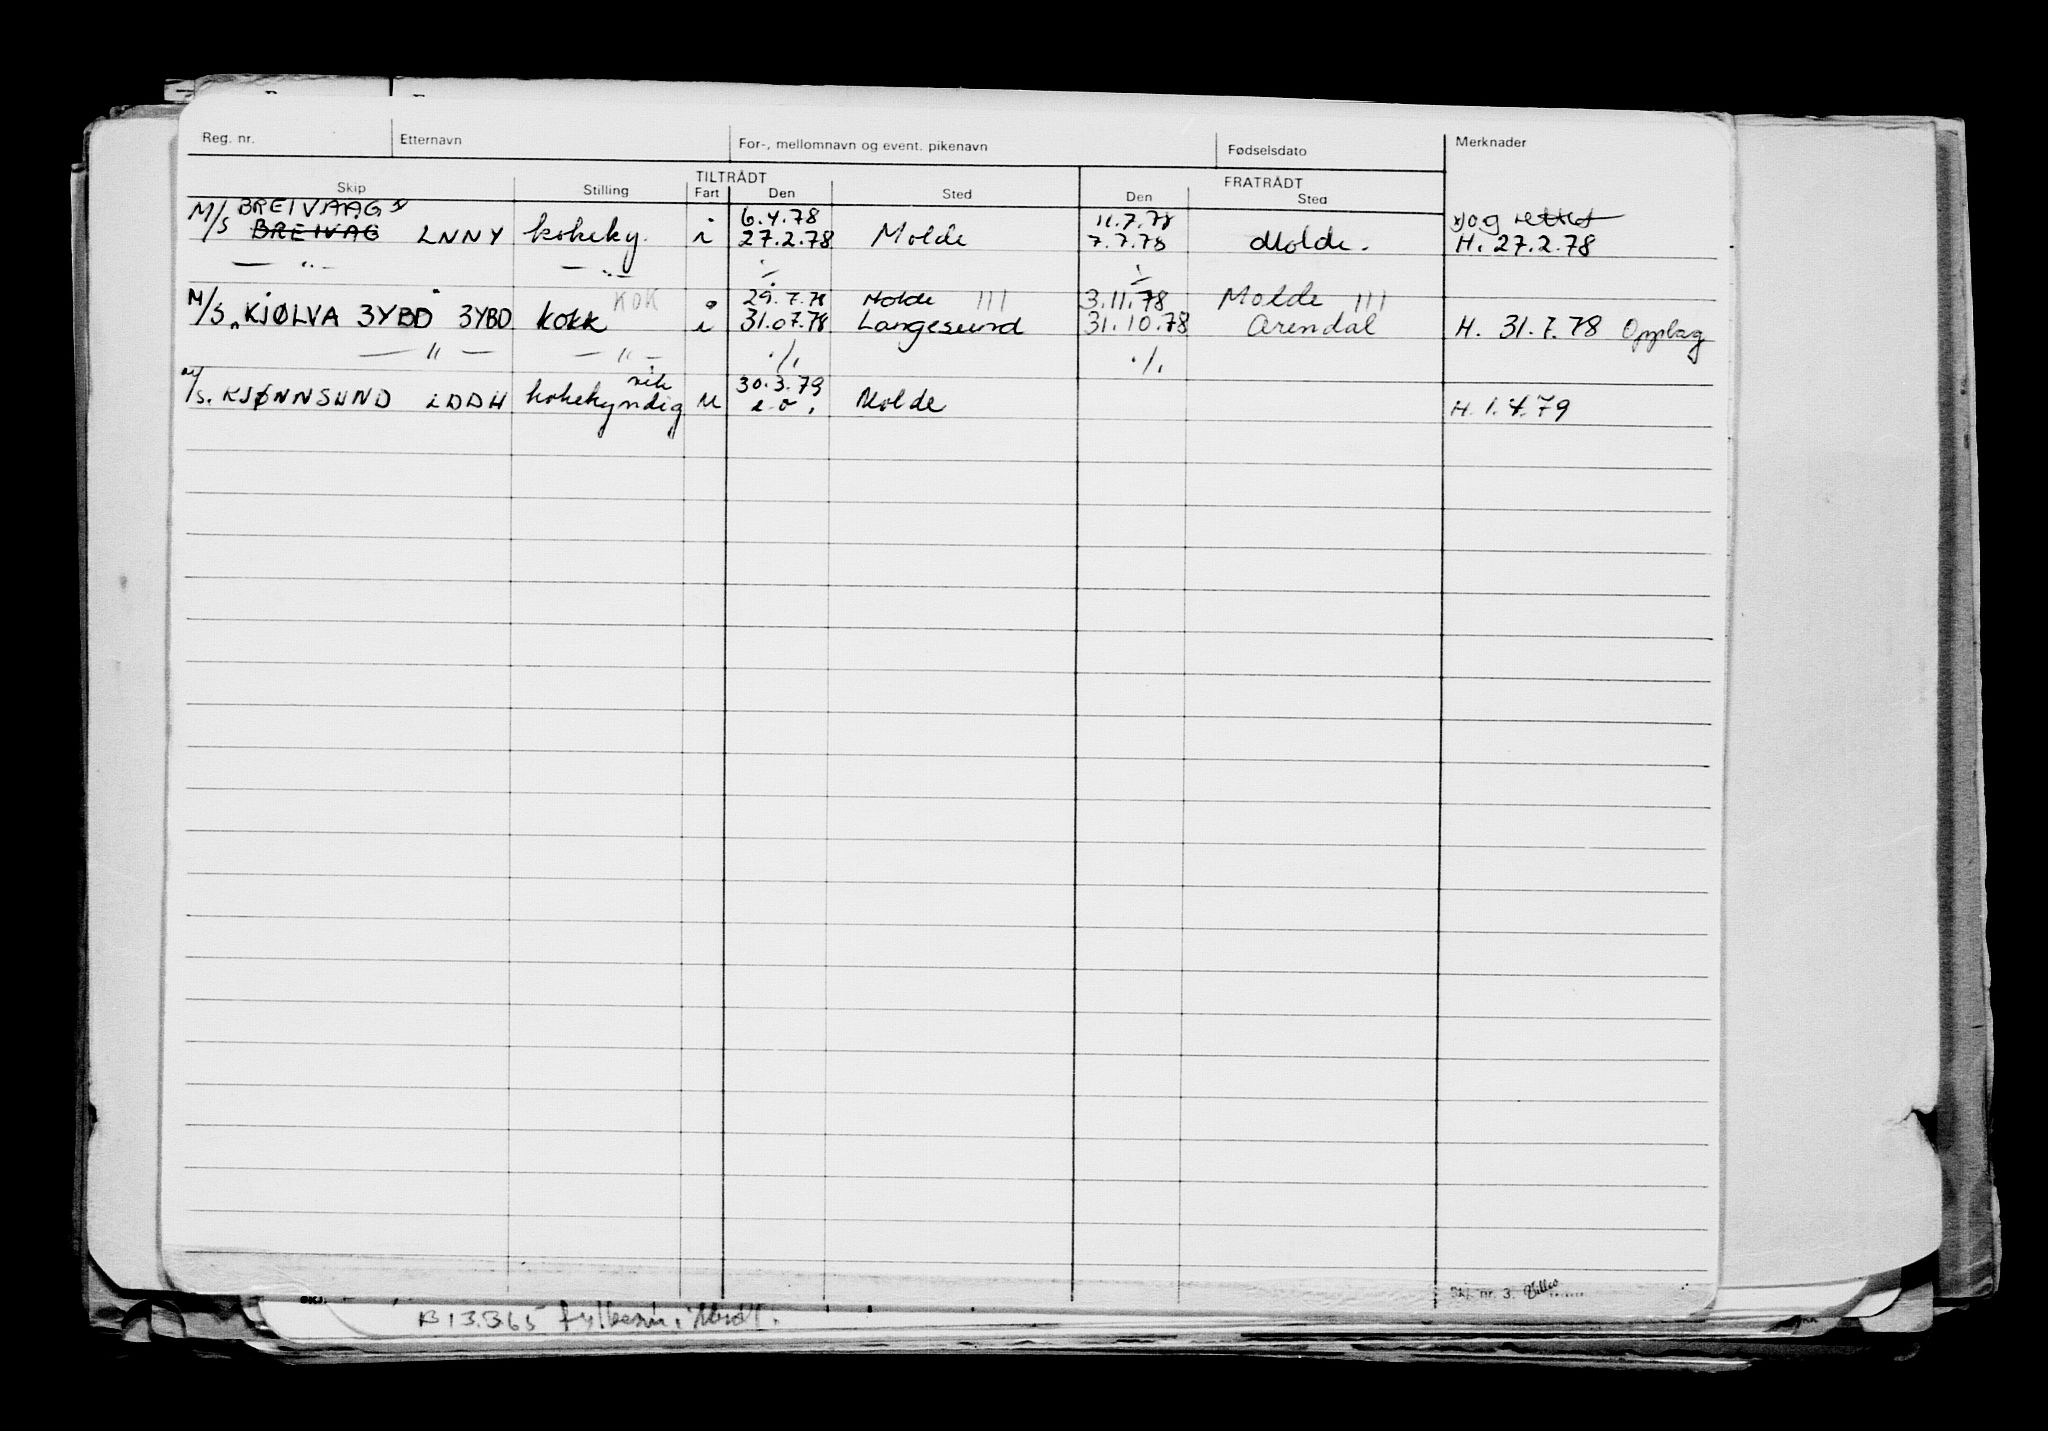 Reg. nr. Etternavn For-, mellomnavn og event. pikenavn Fødselsdato Merknader
TILTRÅDT FRATRÅDT
Skip Stilling Fart Den Sted Den Sted
BREIVAAG x) 6.4.78 11.7.78 x) og rettet
M/S BREIVÅG LNNY kokeky. i 27.2.78 Molde 7.7.78 Molde. H. 27.2.78
— " — — " — ./. ./.
KOK 29.7.78 Molde 111 3.11.78 Molde 111
M/S "KJØLVA 3YBD" 3YBD kokk i 31.07.78 Langesund 31.10.78 Arendal H. 31.7.78 Opplag
— " — — " — ./. ./.
30.3.79
M/S. KJØNNSUND LDDH kokekyndig U Molde H. 1.4.79
Skj. nr. 3.
B 13.365